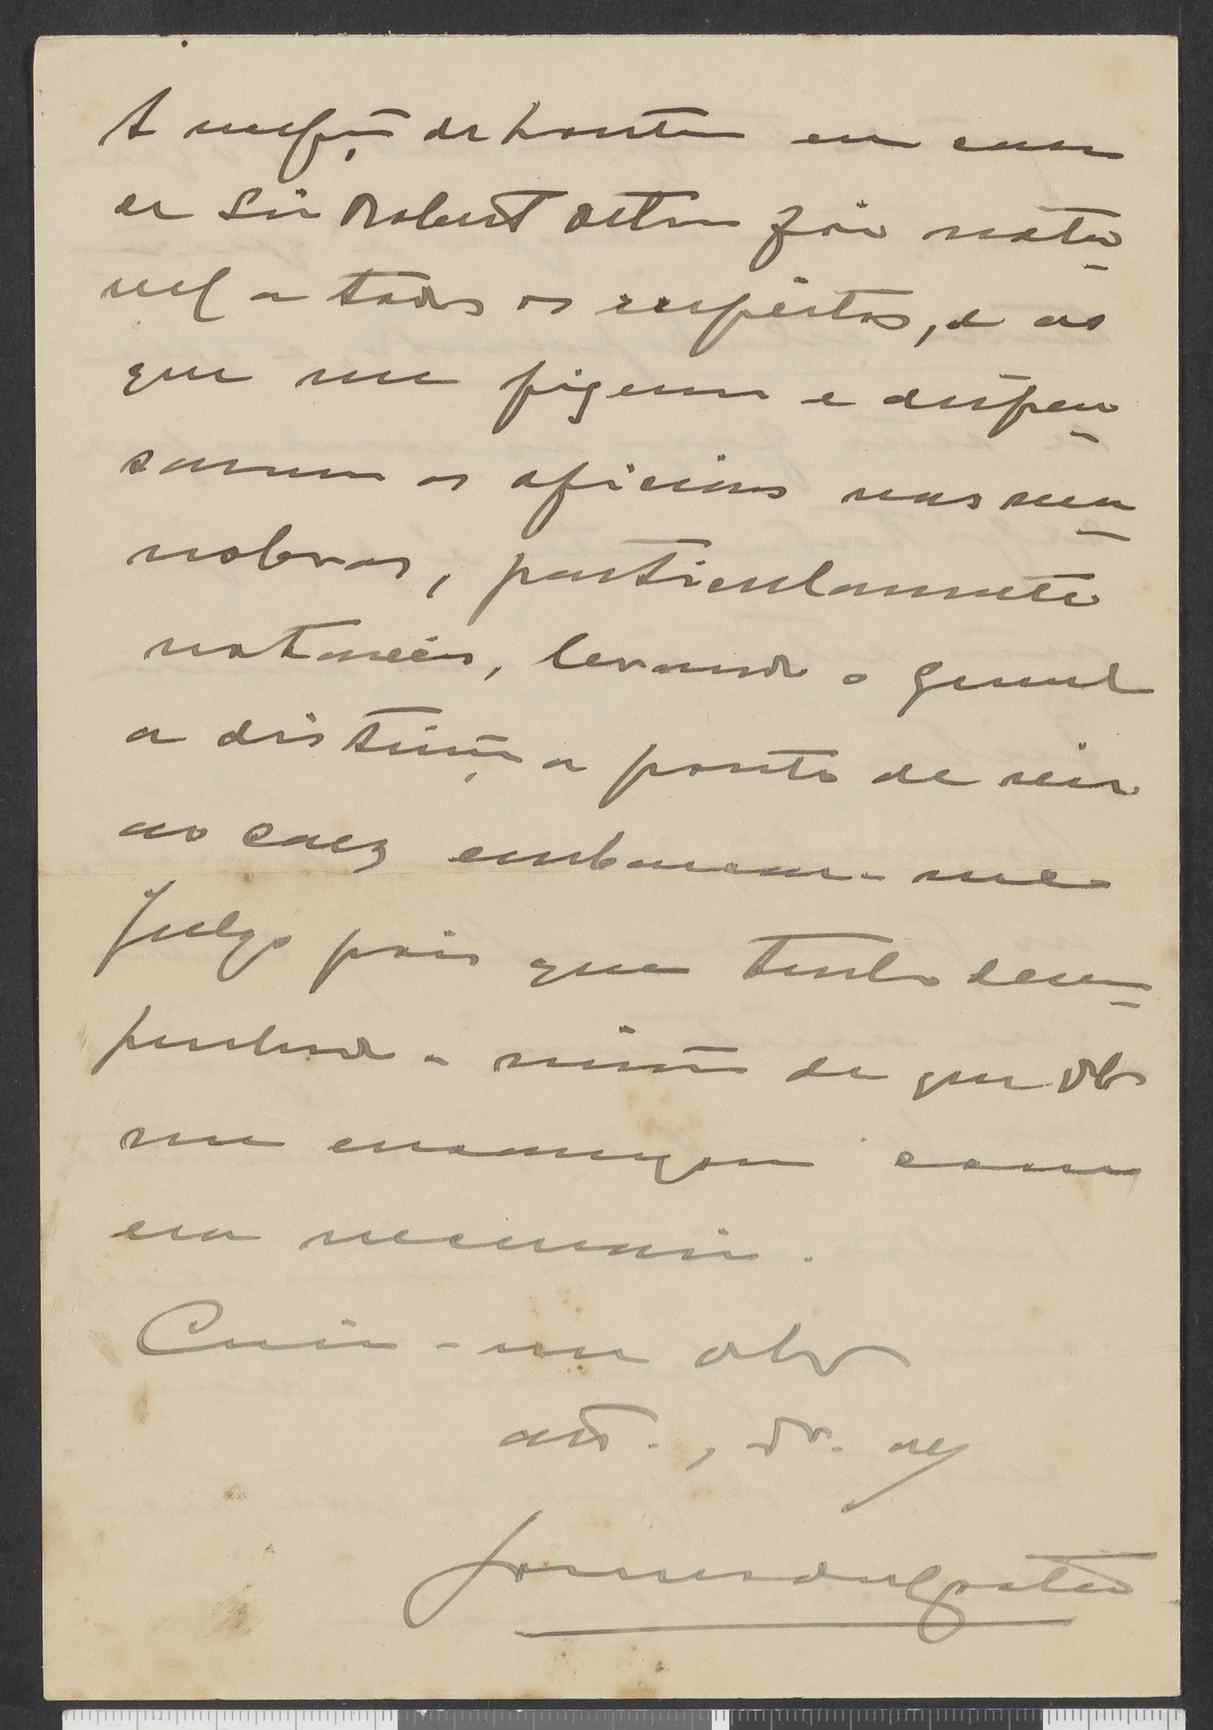 A recepção de hontem em casa
de Sir Robert        foi nota-
vel a todos os respeitos, e as
que me fizeram e dispen-
saram os oficiaes nas ma-
nobras, particularmente
notaveis, levando o general
a distinção a ponto de vir
ao caes embarcar-me
Julgo pois que tenho desem-
penhado a missão de que
me encarregou como
era necessario.
Creia-me
att.